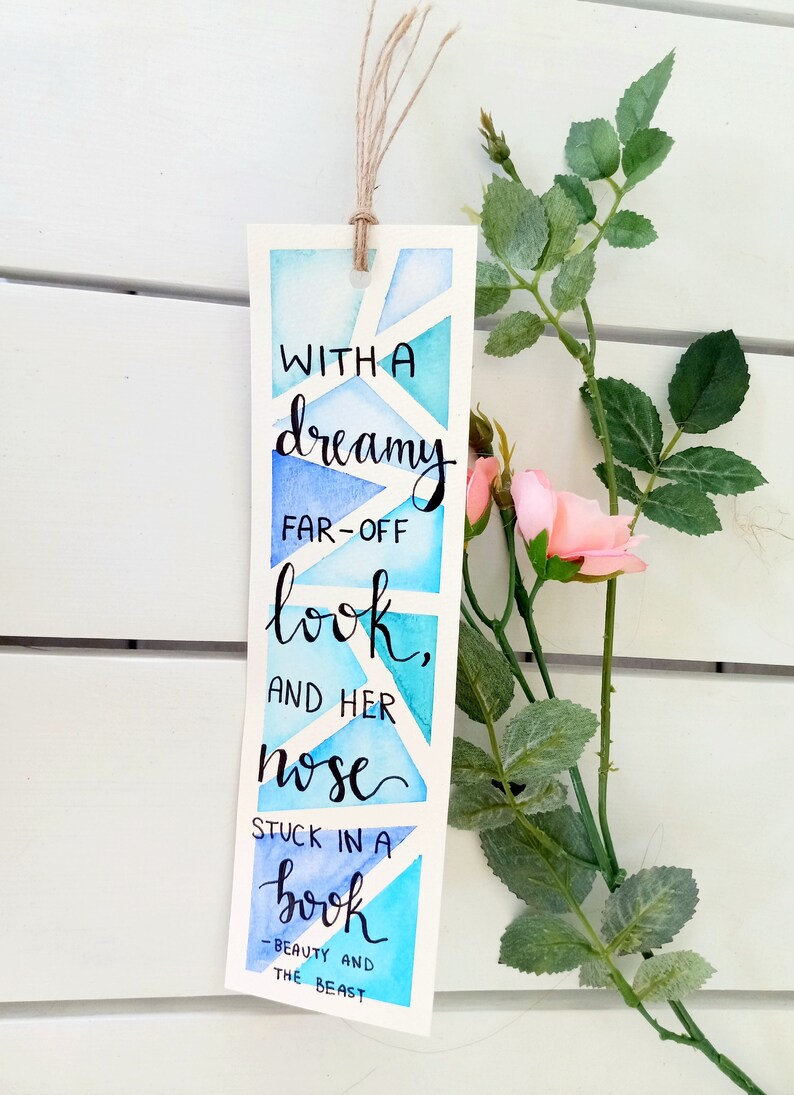 WITH A
dreamy
FAR-OFF
look,
AND HER
nose
STUCK IN A
book
-BEAUTY AND
THE BEAST